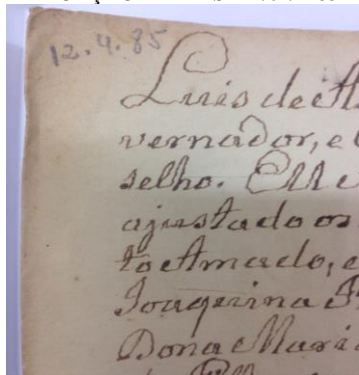 12.4.85
Luis de Al
vernador, e C
selho. Ell e
ajustado os
to Amado, e
Joaquina
Dona Maria